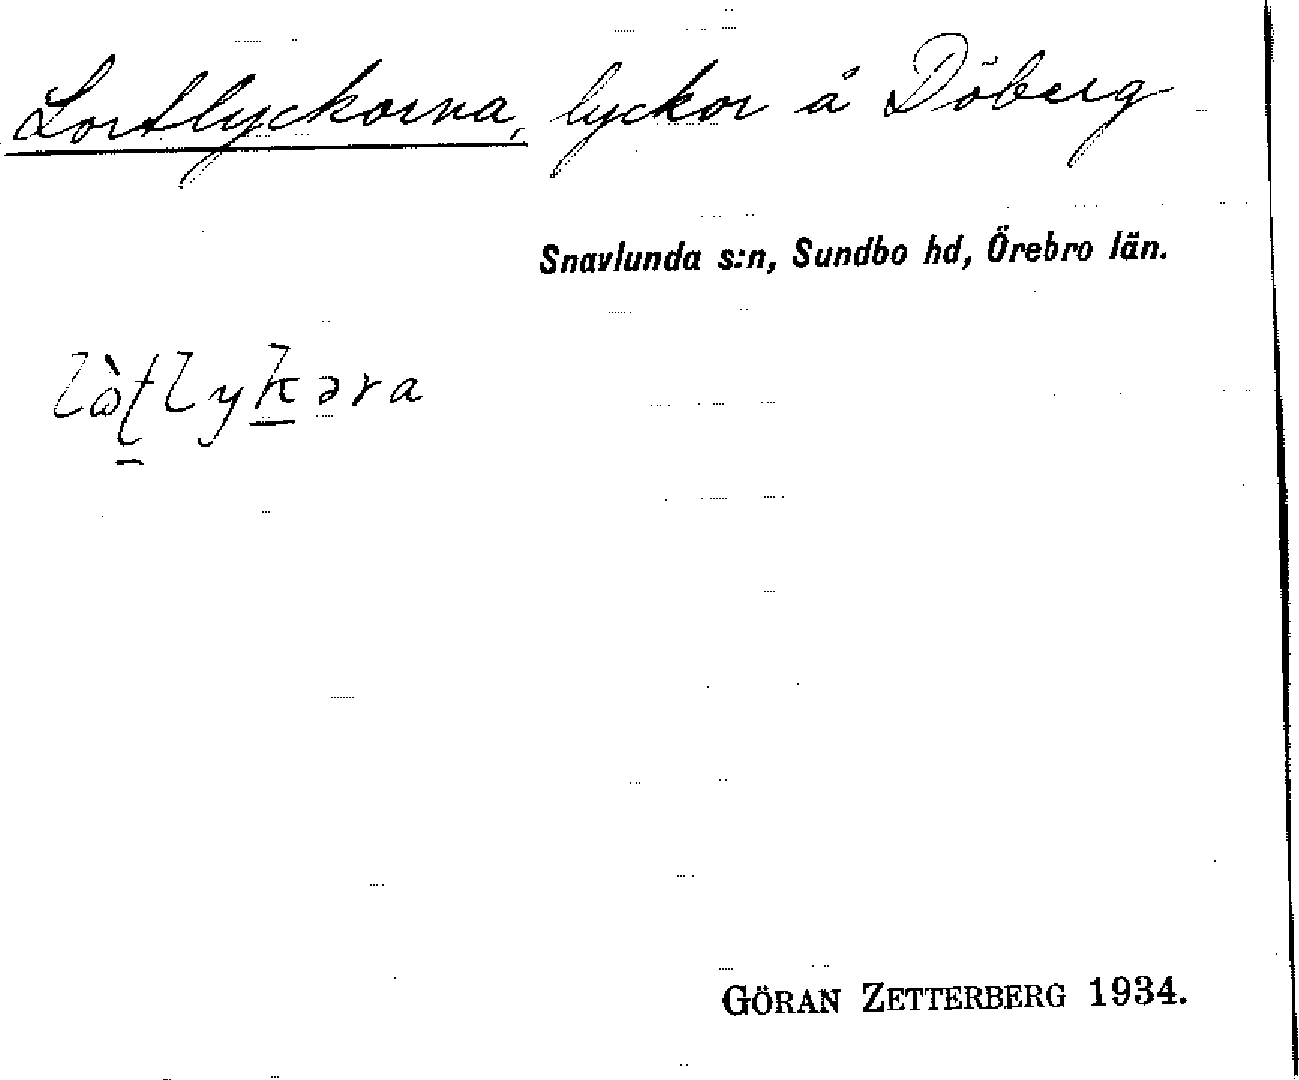 Lortlyckorna, lyckor å Döberg
Snavlunda s:n, Sundbo hd, Örebro län.
lὼʈlykəra
GÖRAN ZETTERBERG 1934.